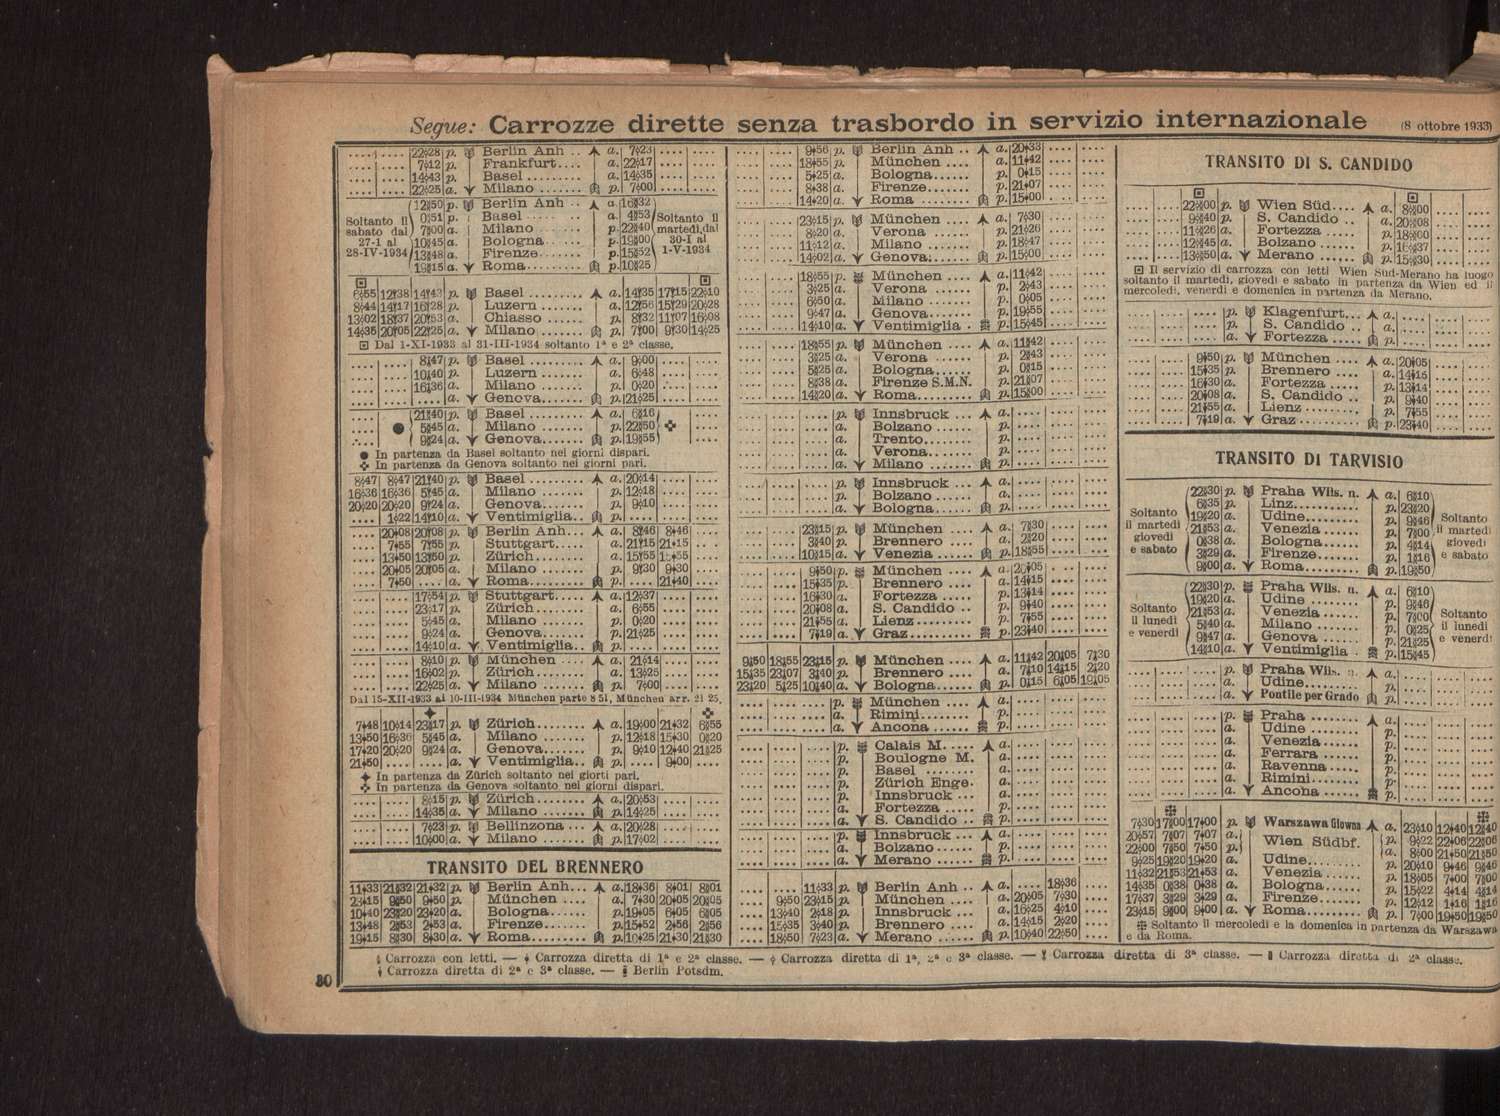 Segue: Carrozze dirette senza trasbordo in servizio internazionale (8 ottobre 1933)
22 28 p. Berlin Anh .. a. 7 23
7 12 p. Frankfurt.... a. 22 17
14 43 p. Basel ........ a. 14 35
22 25 a. Milano ....... p. 7 00
Soltanto il sabato dal 27-1 al 28-IV-1934
12 50 p. Berlin Anh ... a. 16 32
0 51 p. Basel a. 4 53
7 00 a. Milano p. 22 40
10 45 a. Bologna p. 19 00
13 48 a. Firenze....... p. 15 52
19 15 a. Roma......... p. 10 25
Soltanto il martedì, dal 30-I al 1-V-1934
6 55 12 38 14 43 p. Basel ......... a. 14 35 17 15 22 10
8 44 14 17 16 28 p. Luzern ........ a. 12 56 15 29 20 28
13 02 18 37 20 53 a. Chiasso ...... p. 8 32 11 07 16 08
14 35 20 05 22 25 a. Milano ....... p. 7 00 9 30 14 25
Dal 1-XI-1933 al 31-III-1934 soltanto 1ª e 2ª classe.
8 47 p. Basel ......... a. 9 00
10 40 p. Luzern ........ a. 6 48
16 36 a. Milano ....... p. 0 20
a. Genova....... p. 21 25
21 40 p. Basel ......... a. 6 16
5 45 a. Milano ....... p. 22 50
9 24 a. Genova....... p. 19 55
In partenza da Basel soltanto nei giorni dispari.
In partenza da Genova soltanto nei giorni pari.
8 47 8 47 21 40 p. Basel ......... a. 20 14
16 36 16 36 5 45 a. Milano ....... p. 12 18
20 20 20 20 9 24 a. Genova....... p. 9 10
1 22 14 10 a. Ventimiglia.. p.
20 08 20 08 p. Berlin Anh... a. 8 46 8 46
7 55 7 55 p. Stuttgart..... a. 21 15 21 15
13 50 13 50 p. Zürich........ a. 15 55 15 55
20 05 20 05 a. Milano ....... p. 9 30 9 30
7 50 a. Roma......... p. 21 40
17 54 p. Stuttgart..... a. 12 37
23 17 p. Zürich........ a. 6 55
5 45 a. Milano ....... p. 0 20
9 24 a. Genova....... p. 21 25
14 10 a. Ventimiglia.. p.
8 10 p. München .... a. 21 14
16 02 p. Zürich........ a. 13 25
22 25 a. Milano ....... p. 7 00
Dal 15-XII-1933 al 10-III-1934 München parte 8 51, München arr. 21 25.
7 48 10 14 23 17 p. Zürich........ a. 19 00 21 32 6 55
13 50 16 36 5 45 a. Milano ....... p. 12 18 15 30 0 20
17 20 20 20 9 24 a. Genova....... p. 9 10 12 40 21 25
21 50 a. Ventimiglia.. p. 9 00
In partenza da Zürich soltanto nei giorti pari.
In partenza da Genova soltanto nei giorni dispari.
8 15 p. Zürich........ a. 20 53
14 35 a. Milano ....... p. 14 25
7 23 p. Bellinzona ... a. 20 28
10 00 a. Milano ....... p. 17 02
TRANSITO DEL BRENNERO
11 33 21 32 21 32 p. Berlin Anh... a. 18 36 8 01 8 01
23 15 9 50 9 50 p. München .... a. 7 30 20 05 20 05
10 40 23 20 23 20 a. Bologna...... p. 19 05 6 05 6 05
13 48 2 53 2 53 a. Firenze....... p. 15 52 2 56 2 56
19 15 8 30 8 30 a. Roma......... p. 10 25 21 30 21 30
9 56 p. Berlin Anh .. a. 20 33
18 55 p. München .... a. 11 42
5 25 a. Bologna...... p. 0 15
8 38 a. Firenze....... p. 21 07
14 20 a. Roma ........ p. 15 00
23 15 p. München .... a. 7 30
8 20 a. Verona ...... p. 21 26
11 12 a. Milano ....... p. 18 47
14 02 a. Genova....... p. 15 00
18 55 p. München .... a. 11 42
3 25 a. Verona ...... p. 2 43
6 50 a. Milano ....... p. 0 05
9 47 a. Genova....... p. 19 55
14 10 a. Ventimiglia . p. 15 45
18 55 p. München .... a. 11 42
3 25 a. Verona ...... p. 2 43
5 25 a. Bologna...... p. 0 15
8 38 a. Firenze S.M.N. p. 21 07
14 20 a. Roma......... p. 15 00
p. Innsbruck ... a.
a. Bolzano ..... p.
a. Trento........ p.
a. Verona....... p.
a. Milano ....... p.
p. Innsbruck ... a.
a. Bolzano ..... p.
a. Bologna...... p.
23 15 p. München .... a. 7 30
3 40 p. Brennero .... a. 2 20
10 15 a. Venezia ..... p. 18 55
9 50 p. München .... a. 20 05
15 35 p. Brennero .... a. 14 15
16 30 a. Fortezza ..... p. 13 14
20 08 a. S. Candido .. p. 9 40
21 55 a. Lienz......... p. 7 55
7 19 a. Graz.......... p. 23 40
9 50 18 55 23 15 p. München .... a. 11 42 20 05 7 30
15 35 23 07 3 40 p. Brennero .... a. 7 10 14 15 2 20
23 20 5 25 10 40 a. Bologna...... p. 0 15 6 05 19 05
p. München .... a.
a. Rimini........ p.
a. Ancona ...... p.
p. Calais M..... a.
p. Boulogne M. a.
p. Basel ........ a.
p. Zürich Enge. a.
p. Innsbruck ... a.
a. Fortezza ..... p.
a. S. Candido .. p.
p. Innsbruck ... a.
a. Bolzano...... p.
a. Merano ...... p.
11 33 p. Berlin Anh .. a. 18 36
9 50 23 15 p. München .... a. 20 05 7 30
13 40 2 18 p. Innsbruck ... a. 16 25 4 10
15 35 3 40 p. Brennero .... a. 14 15 2 20
18 50 7 23 a. Merano ...... p. 10 40 22 50
TRANSITO DI S. CANDIDO
22 00 p. Wien Süd.... a. 8 00
9 40 p. S. Candido .. a. 20 08
11 26 a. Fortezza ..... p. 18 00
12 45 a. Bolzano ...... p. 16 37
13 50 a. Merano ...... p. 15 30
Il servizio di carrozza con letti Wien Sud-Merano ha luogo
soltanto il martedì, giovedì e sabato in partenza da Wien ed il
mercoledì, venerdì e domenica in partenza da Merano.
p. Klagenfurt... a.
p. S. Candido .. a.
a. Fortezza ..... p.
9 50 p. München .... a. 20 05
15 35 p. Brennero .... a. 14 15
16 30 a. Fortezza ..... p. 13 14
20 08 a. S. Candido .. p. 9 40
21 55 a. Lienz......... p. 7 55
7 19 a. Graz ......... p. 23 40
TRANSITO DI TARVISIO
Soltanto il martedì giovedì e sabato
22 30 p. Praha Wils. n. a. 6 10
6 35 p. Linz.......... a. 23 20
19 20 a. Udine........ p. 9 46
21 53 a. Venezia...... p. 7 00
0 38 a. Bologna...... p. 4 14
3 29 a. Firenze....... p. 1 16
9 00 a. Roma......... p. 19 50
Soltanto il martedì giovedì e sabato
Soltanto il lunedì e venerdì
22 30 p. Praha Wils. n. a. 6 10
19 20 a. Udine ....... p. 9 46
21 53 a. Venezia ..... p. 7 00
5 40 a. Milano ...... p. 0 25
9 47 a. Genova ...... p. 21 25
14 10 a. Ventimiglia . p. 15 45
Soltanto il lunedì e venerdì
p. Praha Wils. n. a.
a. Udine........ p.
a. Pontile per Grado p.
p. Praha ........ a.
a. Udine ....... p.
a. Venezia...... p.
a. Ferrara ..... p.
a. Ravenna..... p.
a. Rimini........ p.
a. Ancona ...... p.
7 30 17 00 17 00 p. Warszawa Glowna a. 23 10 12 40 12 40
20 57 7 07 7 07 a. Wien Südbf. p. 9 22 22 06 22 06
22 00 7 50 7 50 p. a. 8 00 21 50 21 50
9 25 19 20 19 20 a. Udine........ p. 20 10 9 46 9 46
11 32 21 53 21 53 a. Venezia...... p. 18 05 7 00 7 00
14 35 0 38 0 38 a. Bologna...... p. 15 22 4 14 4 14
17 37 3 29 3 29 a. Firenze....... p. 12 12 1 16 1 16
23 15 9 00 9 00 a. Roma ........ p. 7 00 19 50 19 50
Soltanto il mercoledì e la domenica in partenza da Warszawa
e da Roma.
Carrozza con letti. — Carrozza diretta di 1ª e 2ª classe. — Carrozza diretta di 1ª, 2ª e 3ª classe. — Carrozza diretta di 3ª classe. — Carrozza diretta di 2ª classe.
Carrozza diretta di 2ª e 3ª classe. — Berlin Potsdm.
30